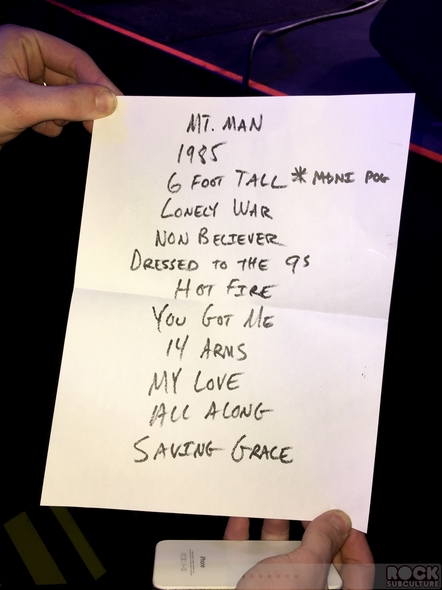 MT. MAN
1985
6 FOOT TALL * MONI POG
LONELY WAR
NON BELIEVER
DRESSED TO THE 9S
HOT FIRE
YOU GOT ME
14 ARMS
MY LOVE
ALL ALONG
SAVING GRACE
iPhone
ROCK
SUBCULTURE